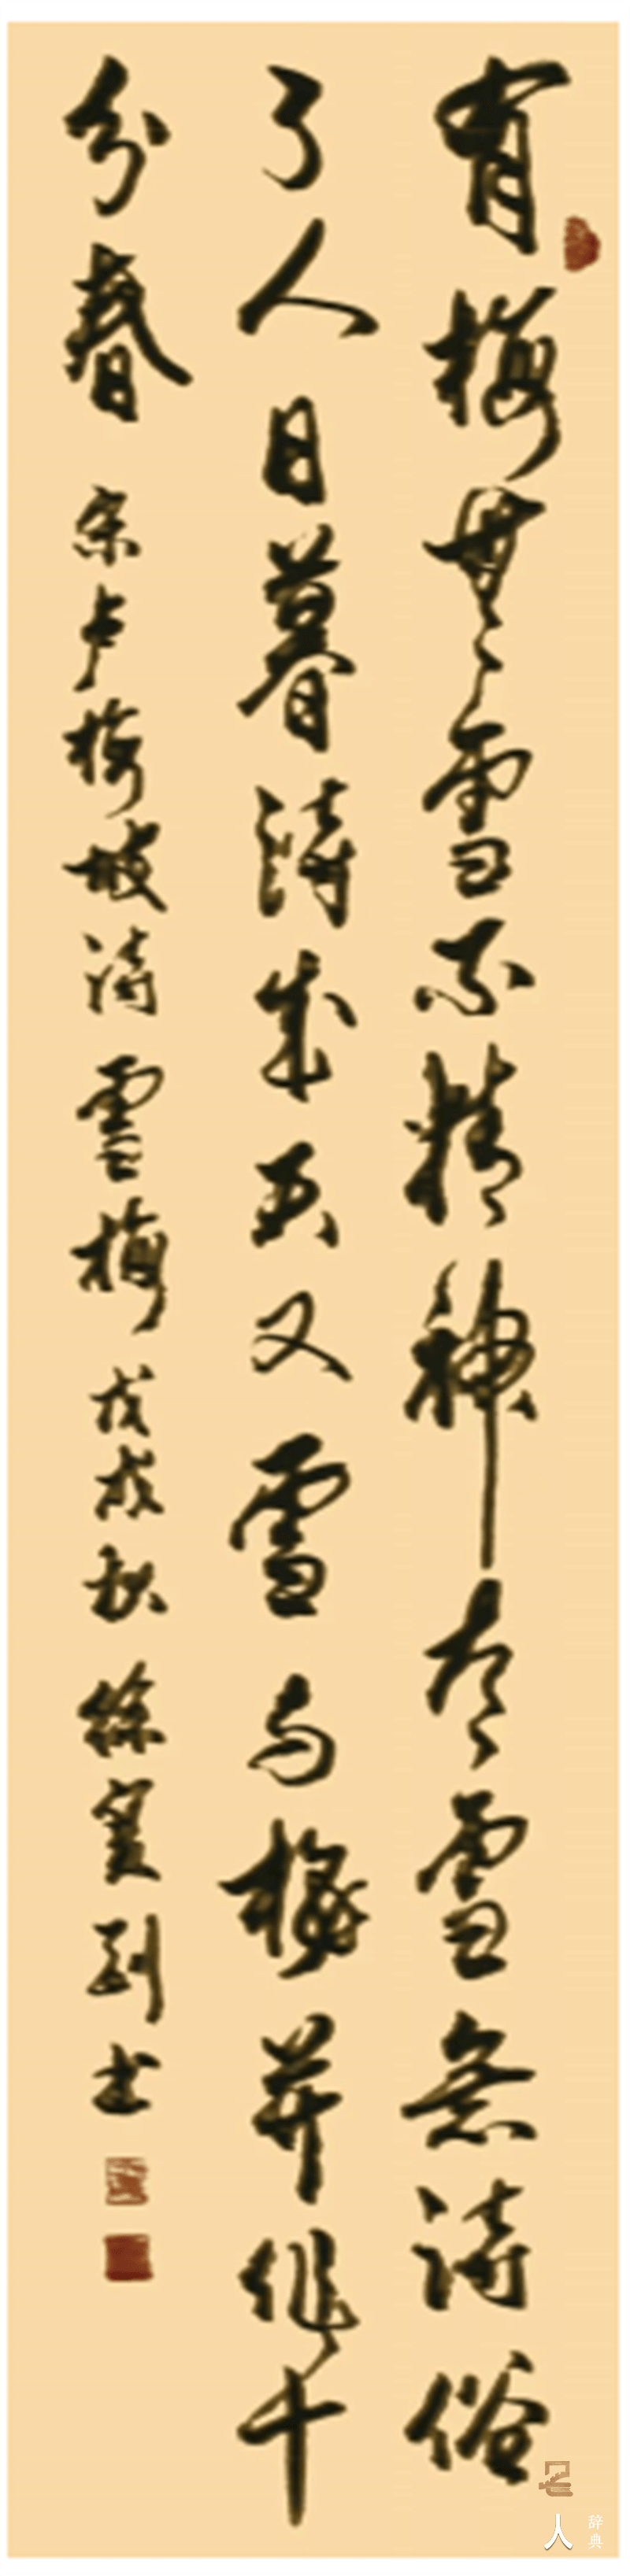 有梅無雪不精神有雪無詩俗
了人日暮詩成天又雪与梅并作十
分春 宋卢梅坡詩雪梅 戊戌秋 书
人
辞典